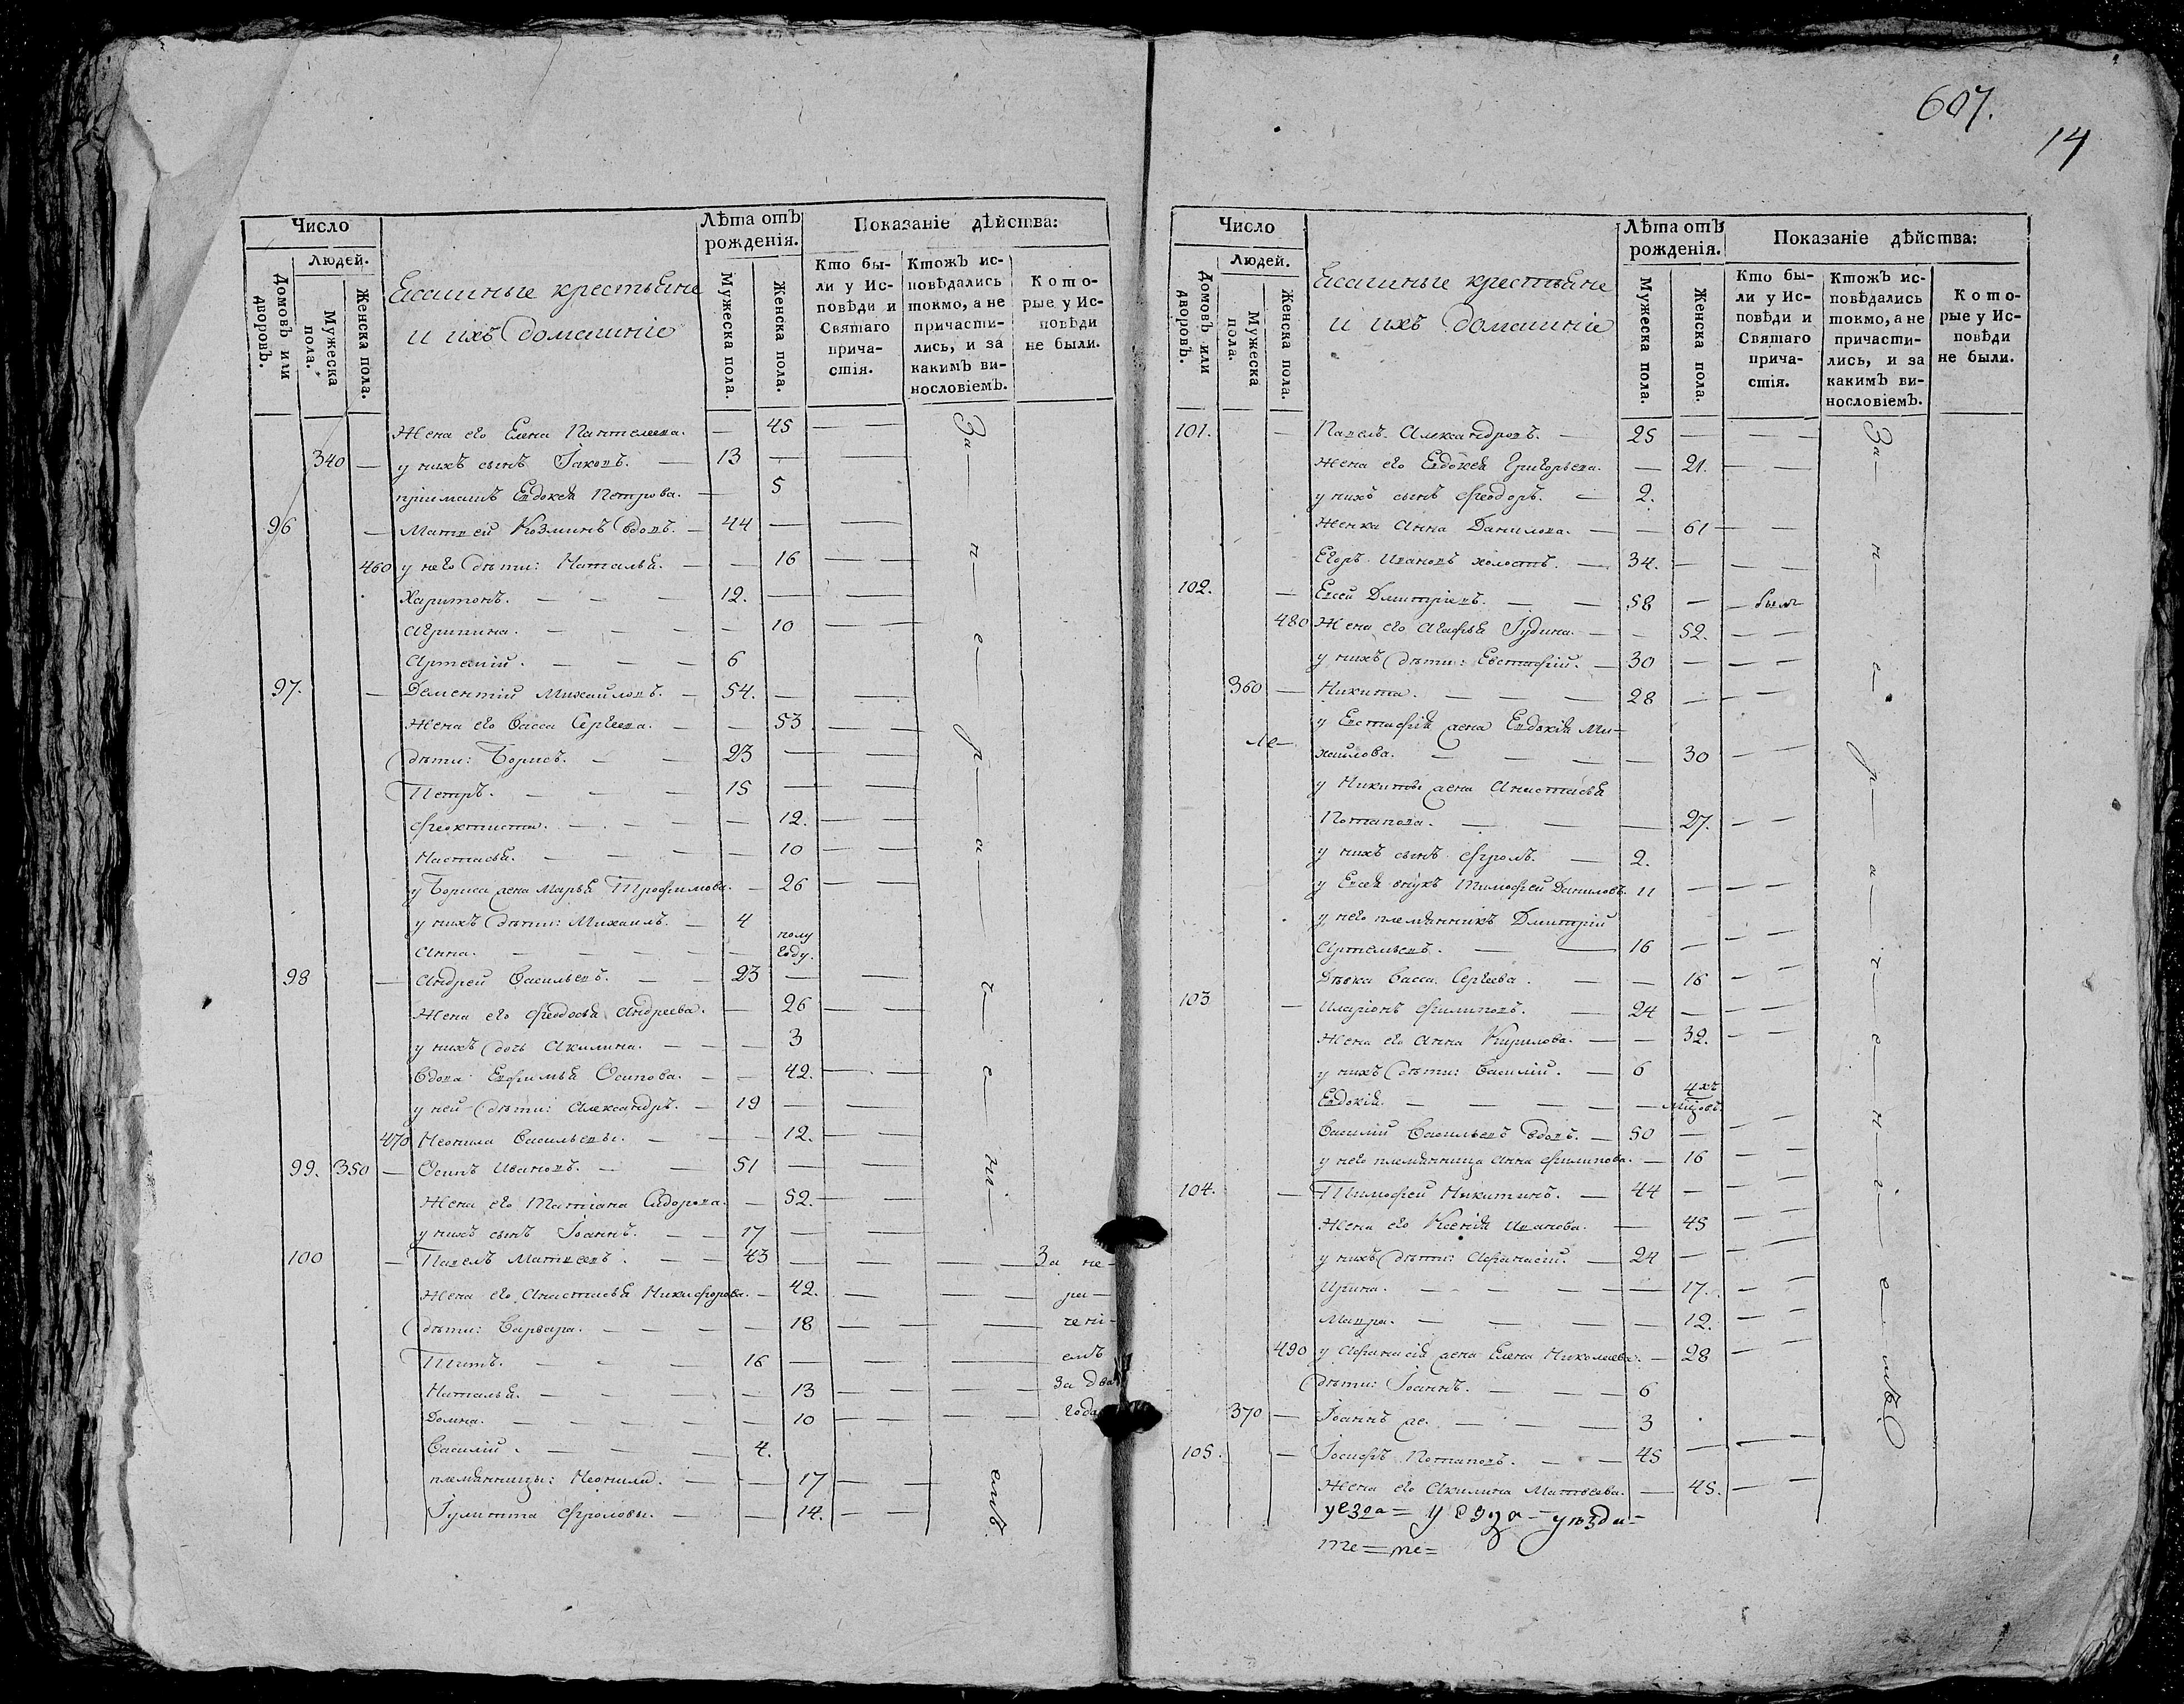 607.
14
Число
Людей.
Домовъ или дворовъ.
Мужеска пола.
Женска пола.
Ясашные крестьяне
и ихъ домашніе
Лѣта отъ рожденія.
Мужеска пола.
Женска пола.
Показаніе дѣйства:
Кто были у Исповѣди и Святаго причастія.
Ктожъ исповѣдались токмо, а не причастились, и за какимъ винословіемъ.
Которые у Исповѣди не были.
Жена его Елена Пантелеева. — 45 — —
340 — у нихъ сынъ Іаковъ. — 13 — —
пріимашъ Евдокея Петрова. — 5
96 — Матвей Козминъ вдовъ. — 44 — —
460 у него дѣти: Наталья. — — 16 — —
Харитонъ. — — — 12. — —
Агрипина. — — — — 10
Артемій. — — — 6
97. — Дементій Михайловъ. — 54. — —
Жена его Васса Сергеева. — — 53 — —
дѣти: Борисъ. — — 23 — —
Петръ. — — — 15 — —
Феоктиста. — — — — 12. — —
Настасья. — — — — 10 — —
у Бориса жена Марья Трофимова. — 26 — —
у нихъ дѣти: Михаилъ. — 4
Анна. — — — — — полу году.
98 — Андрей Васильевъ. — — 23 — —
Жена его Феодосья Андреева. — 26 — —
у нихъ дочь Акилина. — — — 3
вдова Евфимья Осипова. — — 42. — —
у ней дѣти: Александръ. — 19 — —
470 Неонила Васильевы. — — — 12. — —
99. 350 — Осипъ Ивановъ. — — 51 — —
Жена его Татіана Сидорова. — 52. — —
у нихъ сынъ Іоаннъ. — — 17 — —
100 — Павелъ Матвеевъ. — — 43 — — — — За не-
Жена его Анастасья Никифорова. — 42. — — — ра-
дѣти: Варвара. — — — — 18 — — — чені-
Титъ. — — — 16 — — — — емъ
Наталья. — — — — 13 — — — за два
Домна. — — — — — 10 — — — года
Василій. — — — 4.
племянницы: Неонила. — — 17 — —
Іулитта Фроловы. — — 14. — —
За — н — е — р — а — ч — е — ні — емъ.
Число
Людей.
Домовъ или дворовъ.
Мужеска пола.
Женска пола.
Ясашные крестьяне
и ихъ домашніе
Лѣта отъ рожденія.
Мужеска пола.
Женска пола.
Показаніе дѣйства:
Кто были у Исповѣди и Святаго причастія.
Ктожъ исповѣдались токмо, а не причастились, и за какимъ винословіемъ.
Которые у Исповѣди не были.
101. — Павелъ Александровъ. — 25 — — —
Жена его Евдокея Григорьева. — 21. — —
у нихъ сынъ Феодоръ. — 2.
Женка Анна Данилова. — — 61 — —
Егоръ Ивановъ холостъ. — 34. — — —
102. — Евсей Дмитріевъ. — — 58 — — былъ
480 Жена его Агафья Іудина. — — 52. — —
у нихъ дѣти: Евстафій. — 30 — — —
360 — Никита. — — — 28 — — —
у Евстафія жена Евдокія Ми-
хайлова. — — — — 30 — —
у Никиты жена Анастасья
Потапова. — — — — 27. — —
у нихъ сынъ Фролъ. — 2.
у Евсея внукъ Тимофей Даниловъ. 11 — — —
у него племянникъ Дмитрій
Артемьевъ. — — 16 — — —
Дѣвка Васса Сергеева. — — 16 — —
103 — Иларіонъ Филиповъ. — 24 — — —
Жена его Анна Кирилова. — — 32. — —
у нихъ дѣти: Василій. — 6
Евдокія. — — — — — 4хъ мцовъ.
Василій Васильевъ вдовъ. — 50 — — —
у него племянница Анна Филипова. — 16 — —
104. — Тимофей Никитинъ. — 44 — — —
Жена его Ксенія Иванова. — 45 — —
у нихъ дѣти: Афанасій. — 24 — — —
Ирина. — — — — — 17. — —
Мавра. — — — — 12. — —
490 у Афанасія жена Елена Николаева. — 28 —
дѣти: Іоаннъ. — — — 6
370 — Іоаннъ же. — — — 3
105. — Іосифъ Потаповъ. — — 45 — — —
Жена его Акилина Матвеева. — 45. — —
За н — е — р — а — ч — е — н — і — е — мъ.